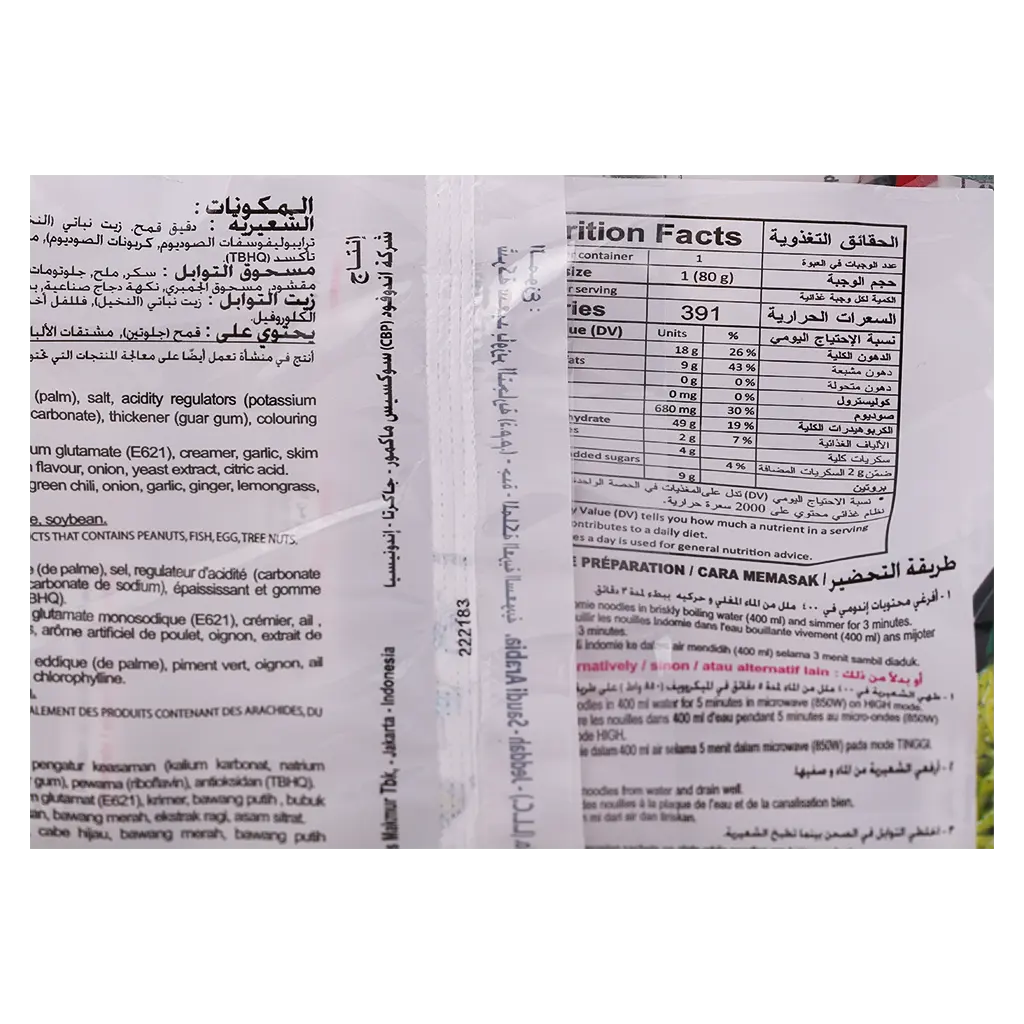 المكونات :
الشعيرية : دقيق قمح, زيت نباتي
ترايبوليفوسفات الصوديوم, كربونات الصوديوم),
تأكسد (TBHQ)
مسحوق التوابل : سكر, ملح, جلوتومات
مقشود, مسحوق الجمبري, نكهة دجاج صناعية,
زيت التوابل : زيت نباتي (النخيل), فلفل
الكلوروفيل.
يحتوي على : قمح (جلوتين), مشتقات
أنتج في منشأة تعمل أيضًا على معالجة المنتجات التي
(palm), salt, acidity regulators (potassium
carbonate), thickener (guar gum), colouring
um glutamate (E621), creamer, garlic, skim
flavour, onion, yeast extract, citric acid.
green chili, onion, garlic, ginger, lemongrass,
e, soybean.
CTS THAT CONTAINS PEANUTS, FISH, EGG, TREE NUTS.
(de palme), sel, regulateur d'acidité (carbonate
carbonate de sodium), épaississant et gomme
BHQ).
glutamate monosodique (E621), crémier, ail ,
, arôme artificiel de poulet, oignon, extrait de
eddique (de palme), piment vert, oignon, ail
chlorophylline.
ALEMENT DES PRODUITS CONTENANT DES ARACHIDES, DU
pengatur keasaman (kalium karbonat, natrium
gum), pewarna (riboflavin), antioksidan (TBHQ).
glutamat (E621), krimer, bawang putih , bubuk
an, bawang merah, ekstrak ragi, asam sitrat.
cabe hijau, bawang merah, bawang putih
إنتاج
شركة اندوفود (CBP) سوكسيس ماكمور - جاكرتا - إندونيسيا
s Makmur Tbk, - Jakarta - Indonesia
222183
Jeddah - Saudi Arabia.
rition Facts الحقائق التغذوية
r container 1 عدد الوجبات في العبوة
size 1 (80 g) حجم الوجبة
r serving الكمية لكل وجبة غذائية
ries 391 السعرات الحرارية
ue (DV) Units % نسبة الإحتياج اليومي
18 g 26 % الدهون الكلية
fats 9 g 43 % دهون مشبعة
0 g 0 % دهون متحولة
0 mg 0 % كوليسترول
680 mg 30 % صوديوم
hydrate 49 g 19 % الكربوهيدرات الكلية
es 2 g 7 % الألياف الغذائية
4 g سكريات كلية
added sugars 4 % ضمن 2 g السكريات المضافة
9 g بروتين
* نسبة الاحتياج اليومي (DV) تدل على المغذيات في الحصة الواحدة
نظام غذائي محتوي على 2000 سعرة حرارية.
y Value (DV) tells you how much a nutrient in a serving
ontributes to a daily diet.
es a day is used for general nutrition advice.
E PRÉPARATION / CARA MEMASAK / طريقة التحضير
١ - أفرغي محتويات إندومي في ٤٠٠ ملل من الماء المغلي و حركيه ببطء لمدة ٣ دقائق.
mie noodles in briskly boiling water (400 ml) and simmer for 3 minutes.
uillir les nouilles Indomie dans l'eau bouillante vivement (400 ml) ans mijoter
3 minutes.
i Indomie ke dalam air mendidih (400 ml) selama 3 menit sambil diaduk.
rnatively / sinon / atau alternatif lain : أو بدلاً من ذلك
١ - طهي الشعيرية في ٤٠٠ ملل من الماء لمدة ٥ دقائق في الميكروويف (٨٥٠ واط) على
odles in 400 ml water for 5 minutes in microwave (850W) on HIGH mode.
re les nouilles dans 400 ml d'eau pendant 5 minutes au micro-ondes (850W)
ode HIGH.
ie dalam 400 ml air selama 5 menit dalam microwave (850W) pada mode TINGGI.
٢ - أرفعي الشعيرية من الماء و صفيها.
noodles from water and drain well.
les nouilles à la plaque de l'eau et de la canalisation bien.
mi dari air dan tiriskan.
٣ - اخلطي التوابل في الصحن بينما تطبخ الشعيرية.